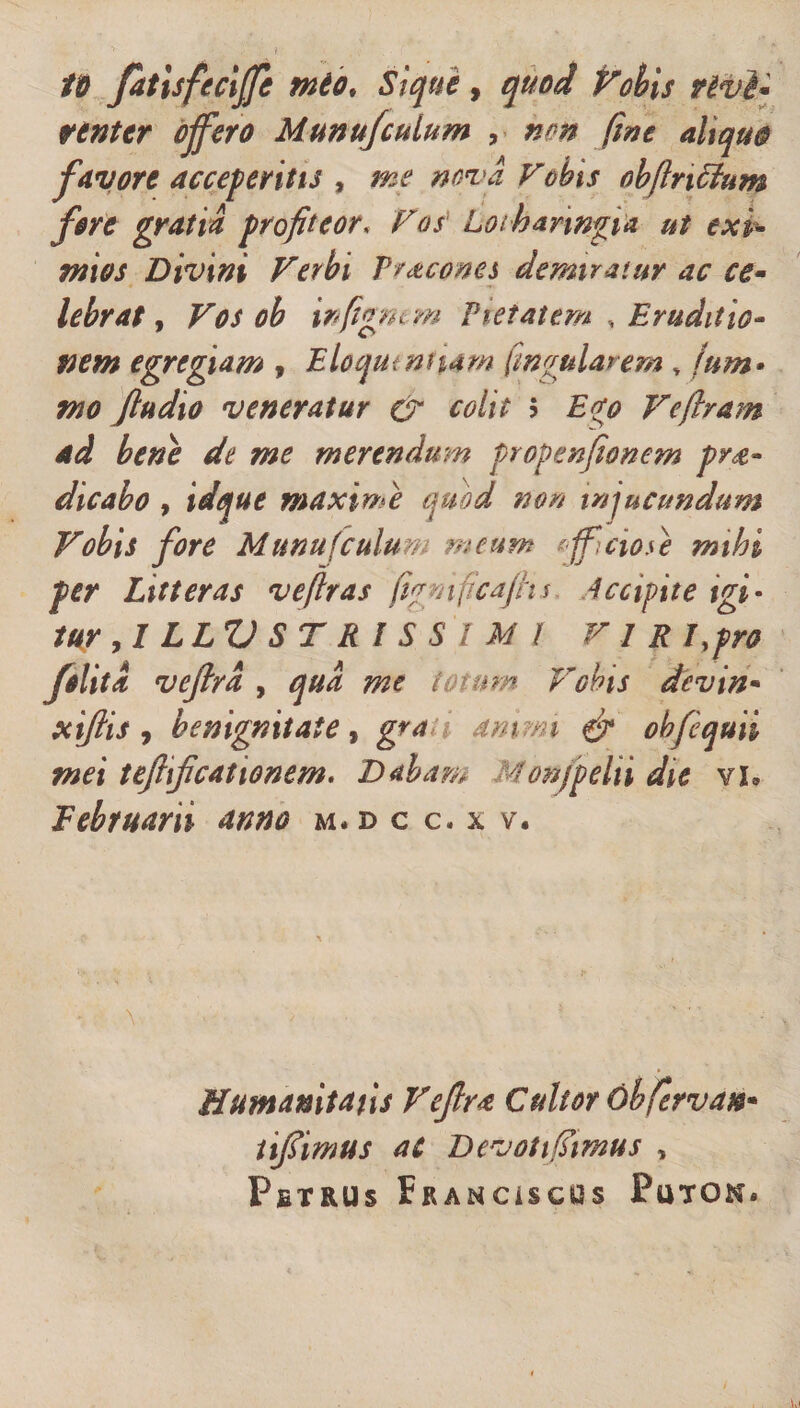 to ſatisfeciſſe méo. Sique, quod Vobis revè-
renter offero Munuſculum, non ſine aliquo
favore acceperitis, me novâ Vobis obſtrictum
fore gratiâ profiteor. Vos Lotharingia ut exi-
mios Divini Verbi Præcones demiratur ac ce-
lebrat, Vos ob inſignem Pietatem, Eruditio-
nem egregiam, Eloquentiam ſingularem, ſum-
mo ſtudio veneratur & colit; Ego Veſtram
ad benè de me merendum propenſionem præ-
dicabo, idque maximè quòd non injucundum
Vobis fore Munuſculum meum officiosè mihi
per Litteras veſtras ſignificaſtis. Accipite igi-
tur, ILLVSTRISSIMI VIRI, pro
ſolitâ veſtrâ, quâ me totum Vobis devin-
xiſtis, benignitate, grati animi & obſequii
mei teſtificationem. Dabam Monſpelii die VI.
Februarii anno M. D C C. X V.
Humanitatis Veſtræ Cultor Obſervan-
tiſſimus ac Devotiſſimus,
PETRUS FRANCISCUS PUTON.